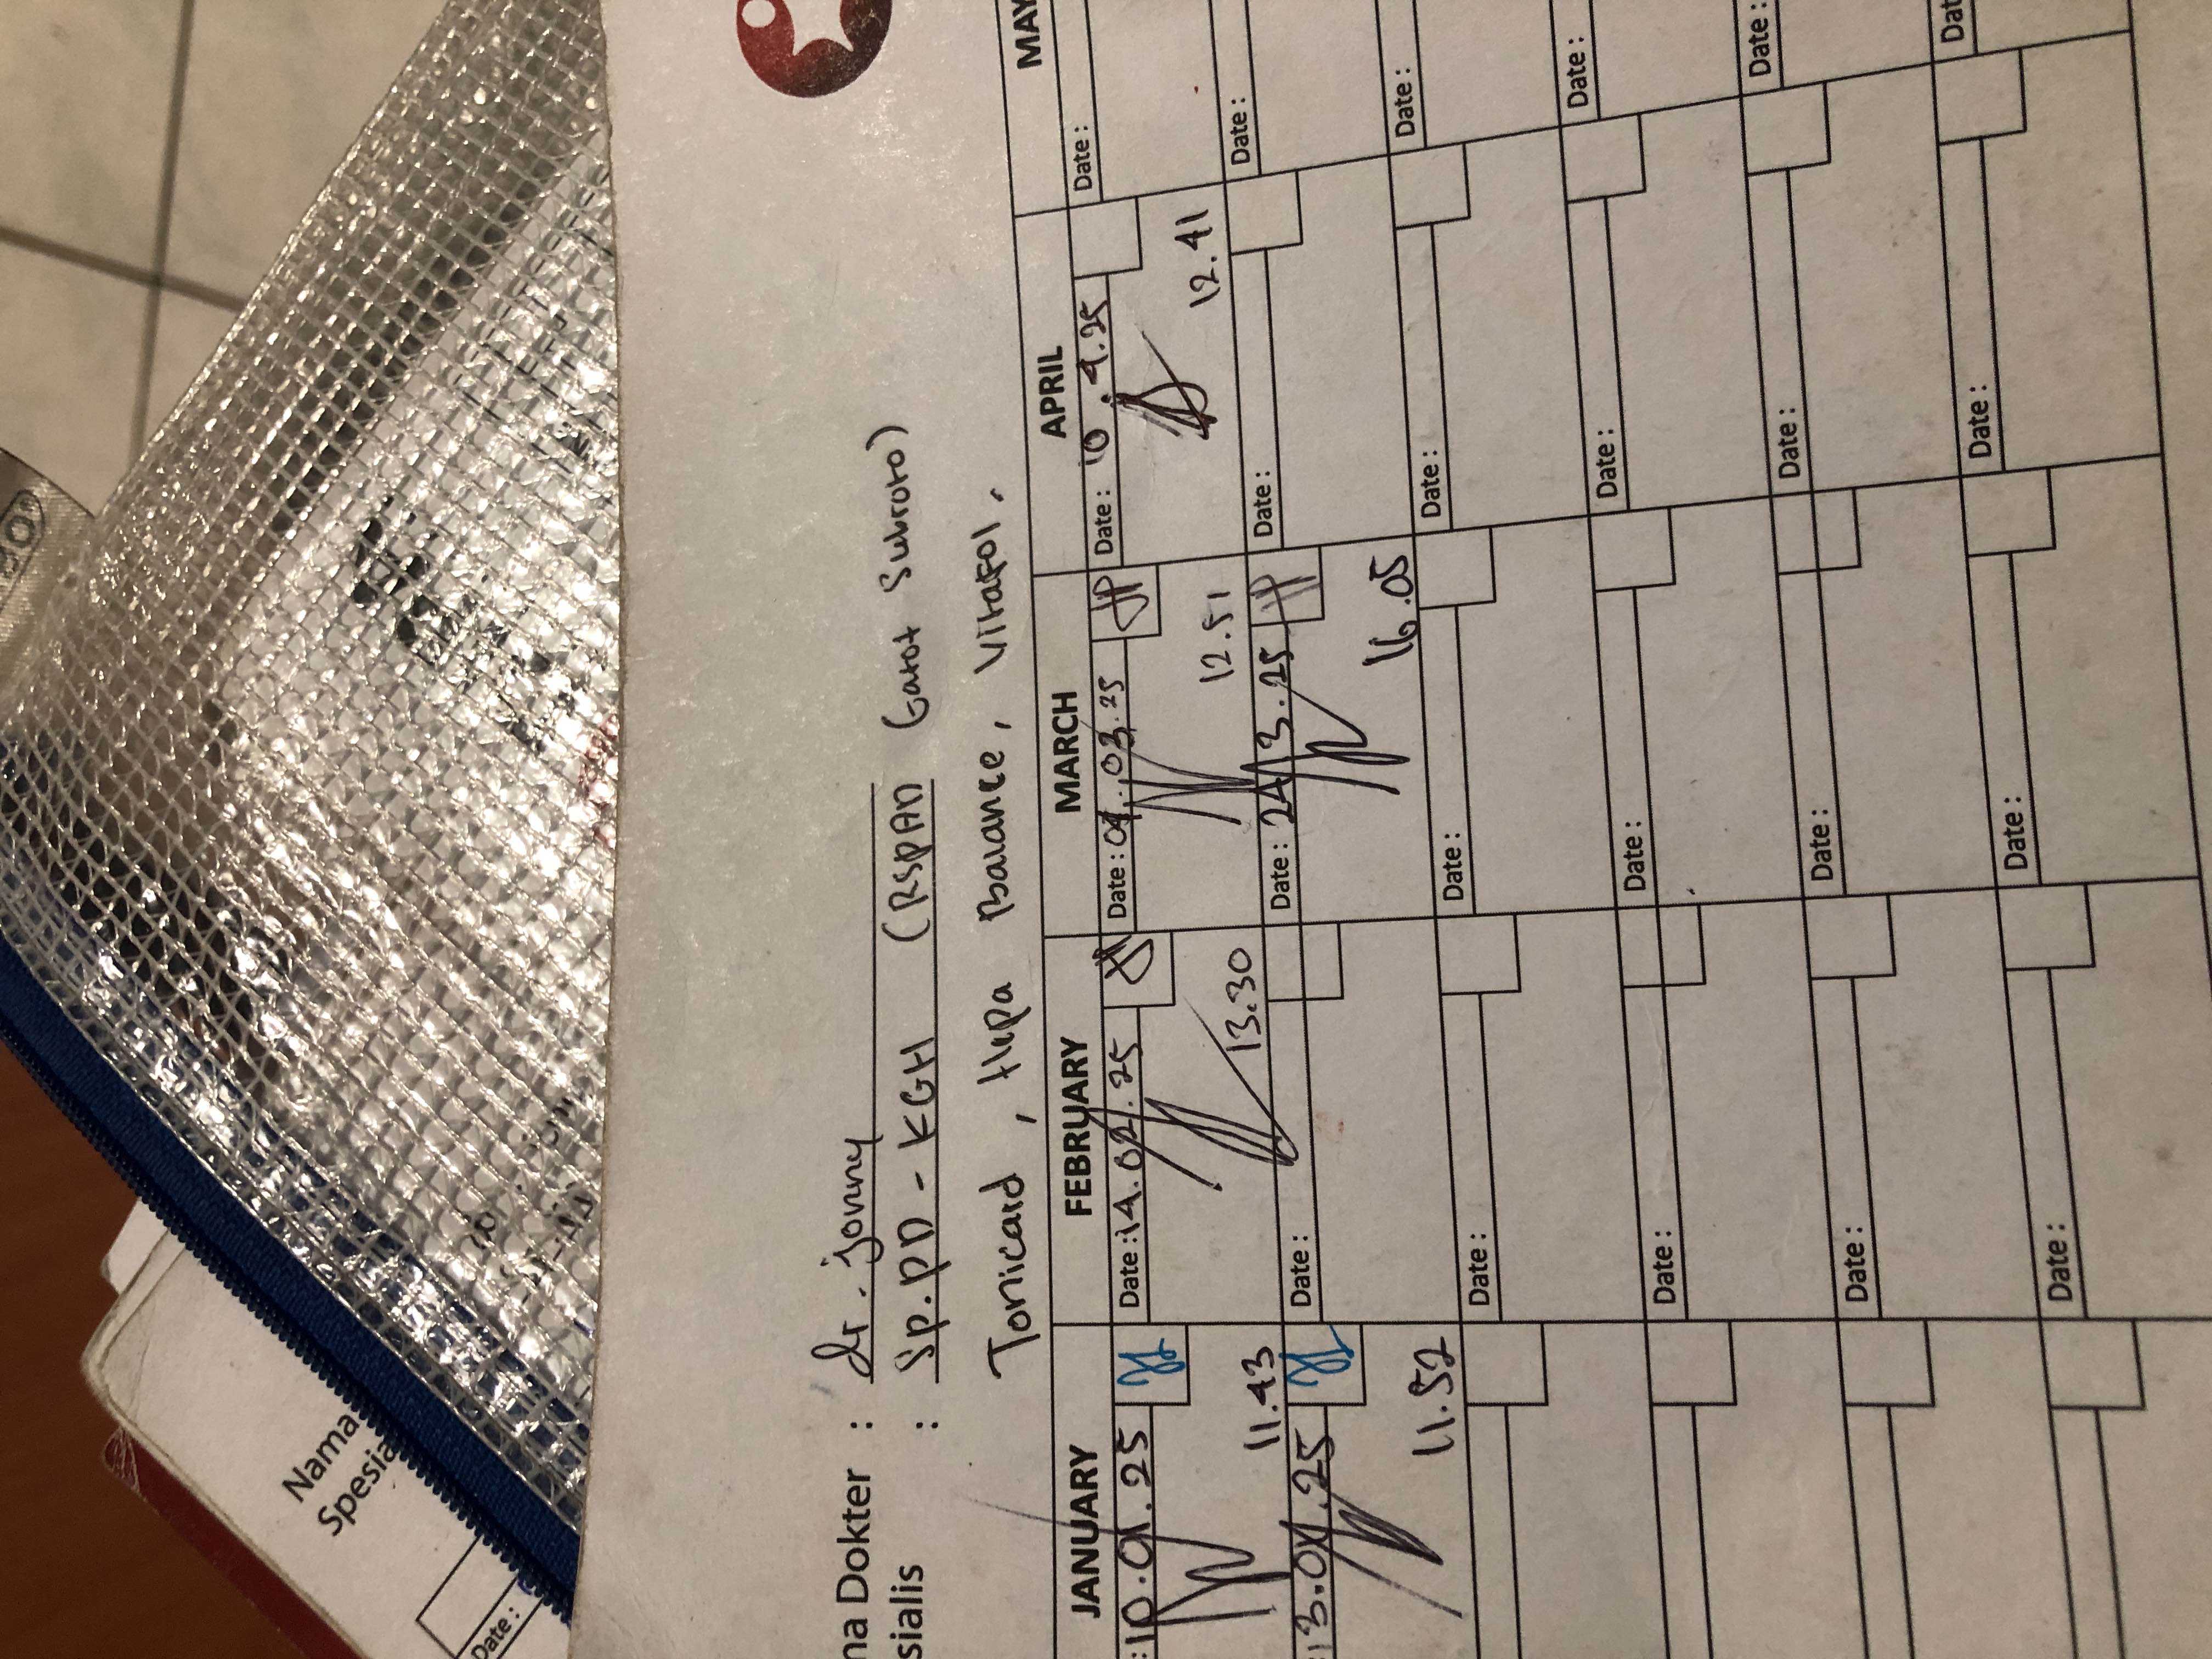 na Dokter : dr. jonny
sialis : Sp.PD - KGH (RSPAD Gatot Subroto)
Tonicard, Hepa Balance, Vitafol.
JANUARY FEBRUARY MARCH APRIL MAY
: 10.01.25 Date : 14.02.25 Date : 03.25 Date : 10.4.25 Date :
11.43 13.30 12.51 12.41
: 13.01.25 Date : Date : 24/3.25 Date : Date :
11.52 16.05
Date : Date : Date : Date :
Date : Date : Date : Date :
Date : Date : Date : Date :
Date : Date : Date : Dat
Nama
Spesia
Date :